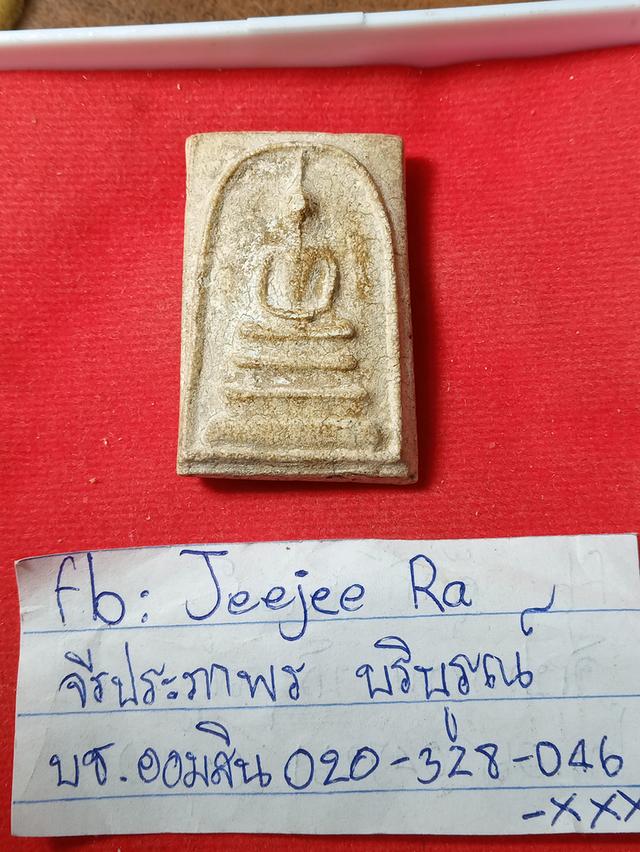 fb: Jeejee Ra
จีรประภาพร บริบูรณ์
บช.ออมสิน 020-328-046
-xxx